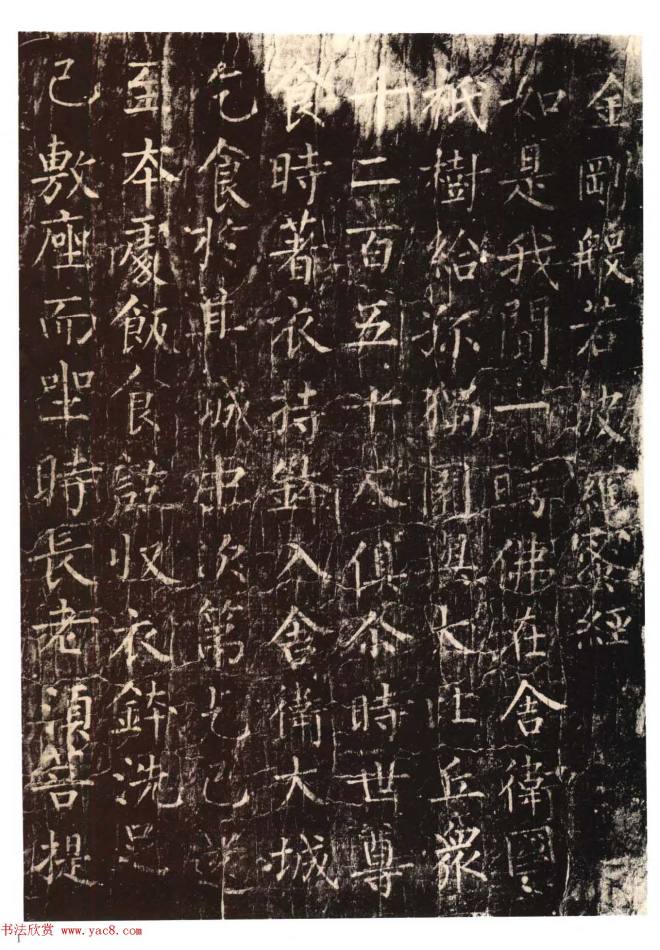 金剛般若波羅蜜經
如是我聞一時佛在舍衛國
祇樹給孤獨園與大比丘衆
千二百五十人俱尒時世尊
食時著衣持鉢入舍衛大城
乞食於其城中次第乞已還
至本處飯食訖收衣鉢洗足
已敷座而坐時長老湏菩提
书法欣赏 www.yac8.com